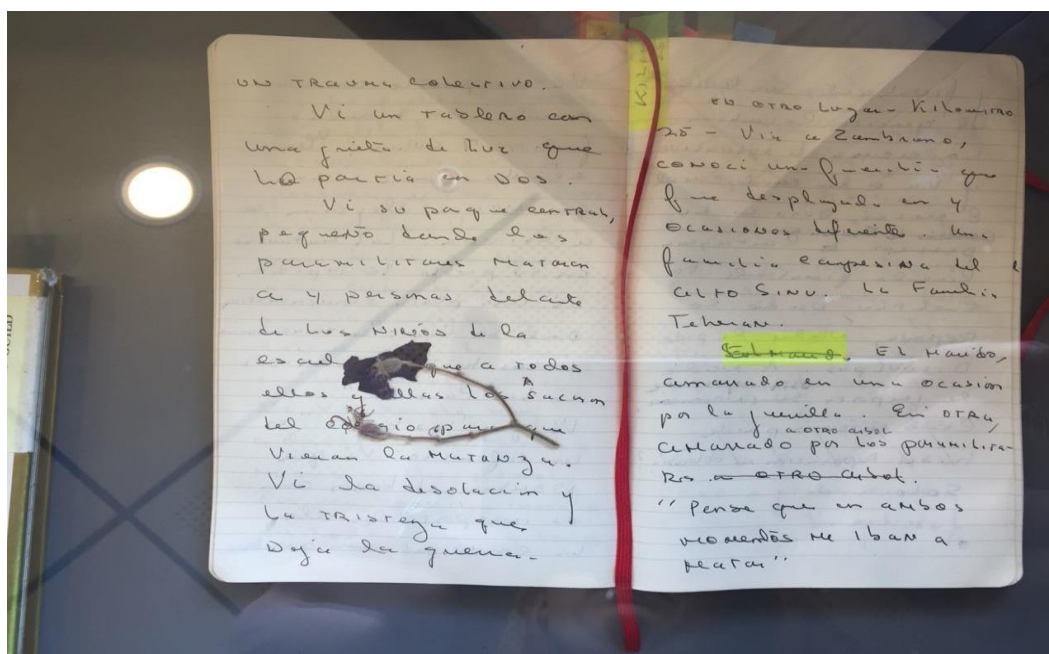 UN TRAUMA COLECTIVO.
Vi un TABLERO con
una grieta de luz que
lo partía en DOS.
Vi su parque CENTRAL,
pequeño donde los
paramilitares MATARON
a 4 personas delante
de los NIÑOS de la
que a todos
ellos y ellas los SACARON
del para que
VIERAN la MATANZA.
Vi la desolación y
la TRISTEZA que
DEJA la guerra.
KILO
EN OTRO LUGAR - Kilometro
25 - Vía a Zambrano,
CONOCÍ una familia que
fue desplazada en 4
OCASIONES diferentes. Una
familia campesina del
ALTO SINÚ. La Familia
Teheran.
El Marido,
amarrado en una ocasión
por la guerrilla. En OTRA,
a OTRO árbol
amarrado por los paramilita-
RES a OTRO árbol.
"Pensé que en ambos
momentos me IBAN a
matar"